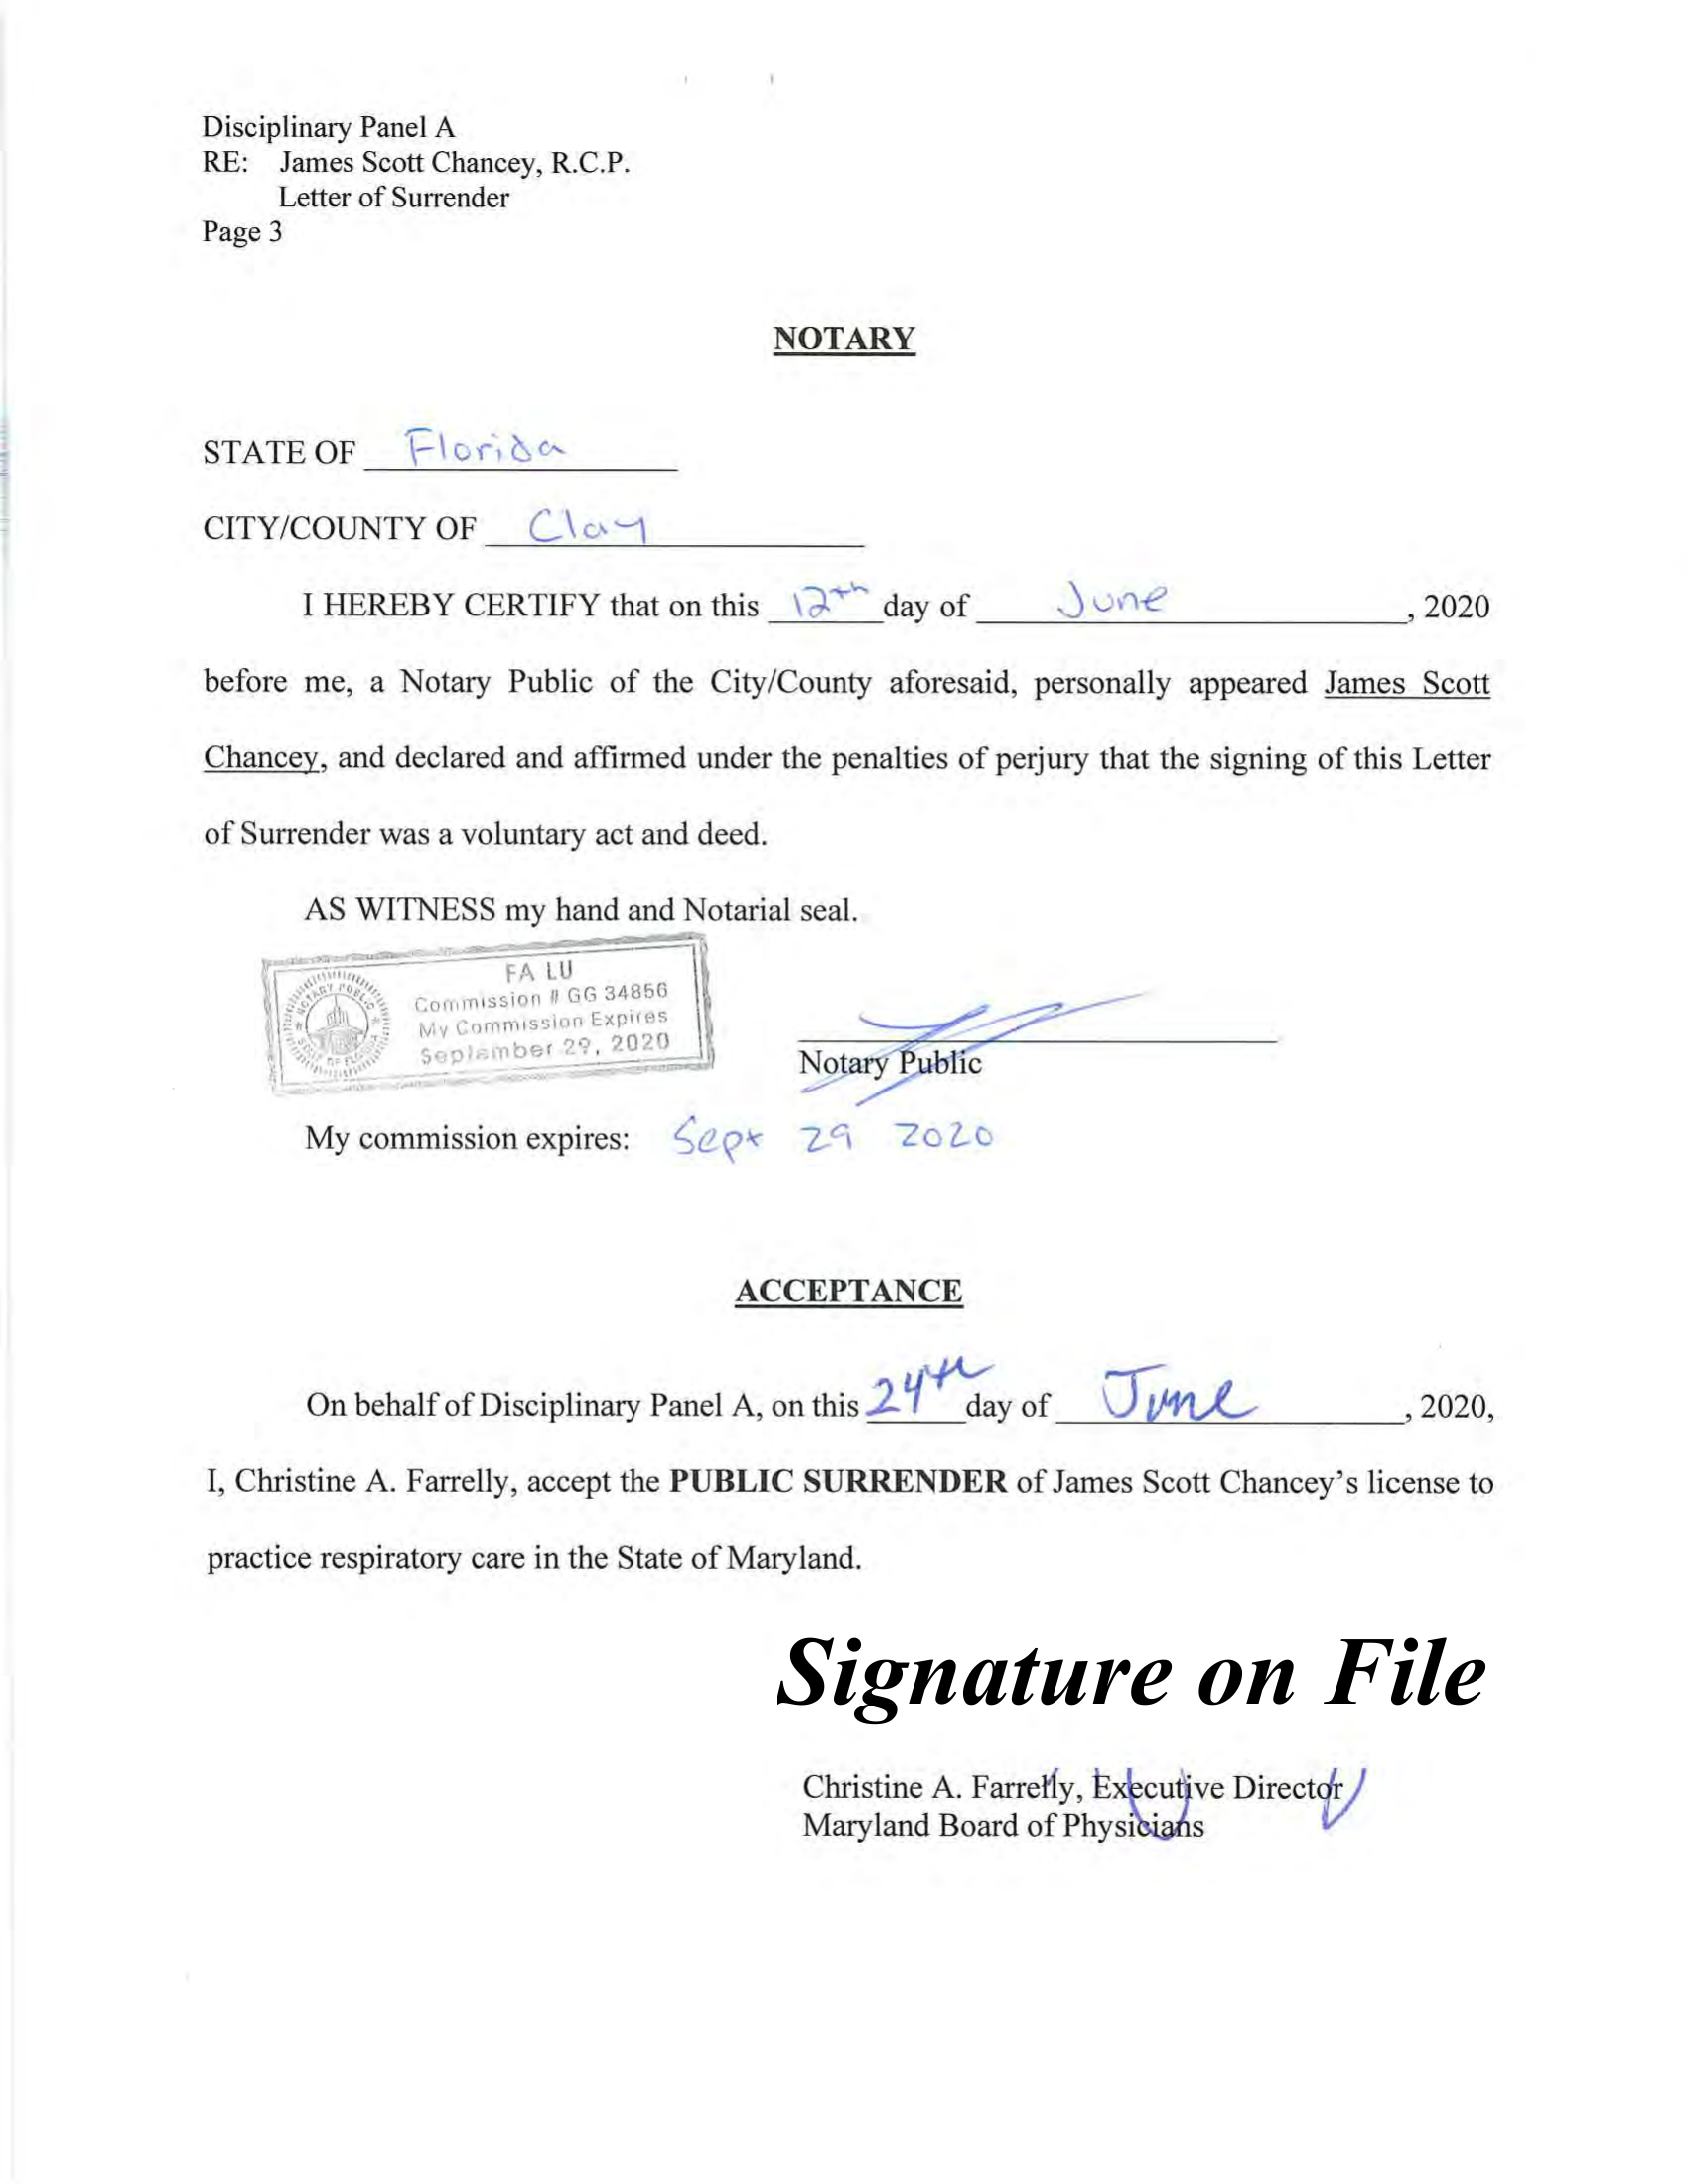 Disciplinary Panel A
RE: James Scott Chancey, R.C.P.
Letter of Surrender
Page 3
NOTARY
STATE OF Florida
CITY/COUNTY OF Clay
I HEREBY CERTIFY that on this 12th day of June, 2020
before me, a Notary Public of the City/County aforesaid, personally appeared James Scott
Chancey, and declared and affirmed under the penalties of perjury that the signing of this Letter
of Surrender was a voluntary act and deed.
AS WITNESS my hand and Notarial seal.
FA LU
Commission # GG 34856
My Commission Expires
September 29, 2020
NOTARY PUBLIC
STATE OF FLORIDA
Notary Public
My commission expires: Sept 29 2020
ACCEPTANCE
On behalf of Disciplinary Panel A, on this 24th day of June, 2020,
I, Christine A. Farrelly, accept the PUBLIC SURRENDER of James Scott Chancey's license to
practice respiratory care in the State of Maryland.
Signature on File
Christine A. Farrelly, Executive Director
Maryland Board of Physicians